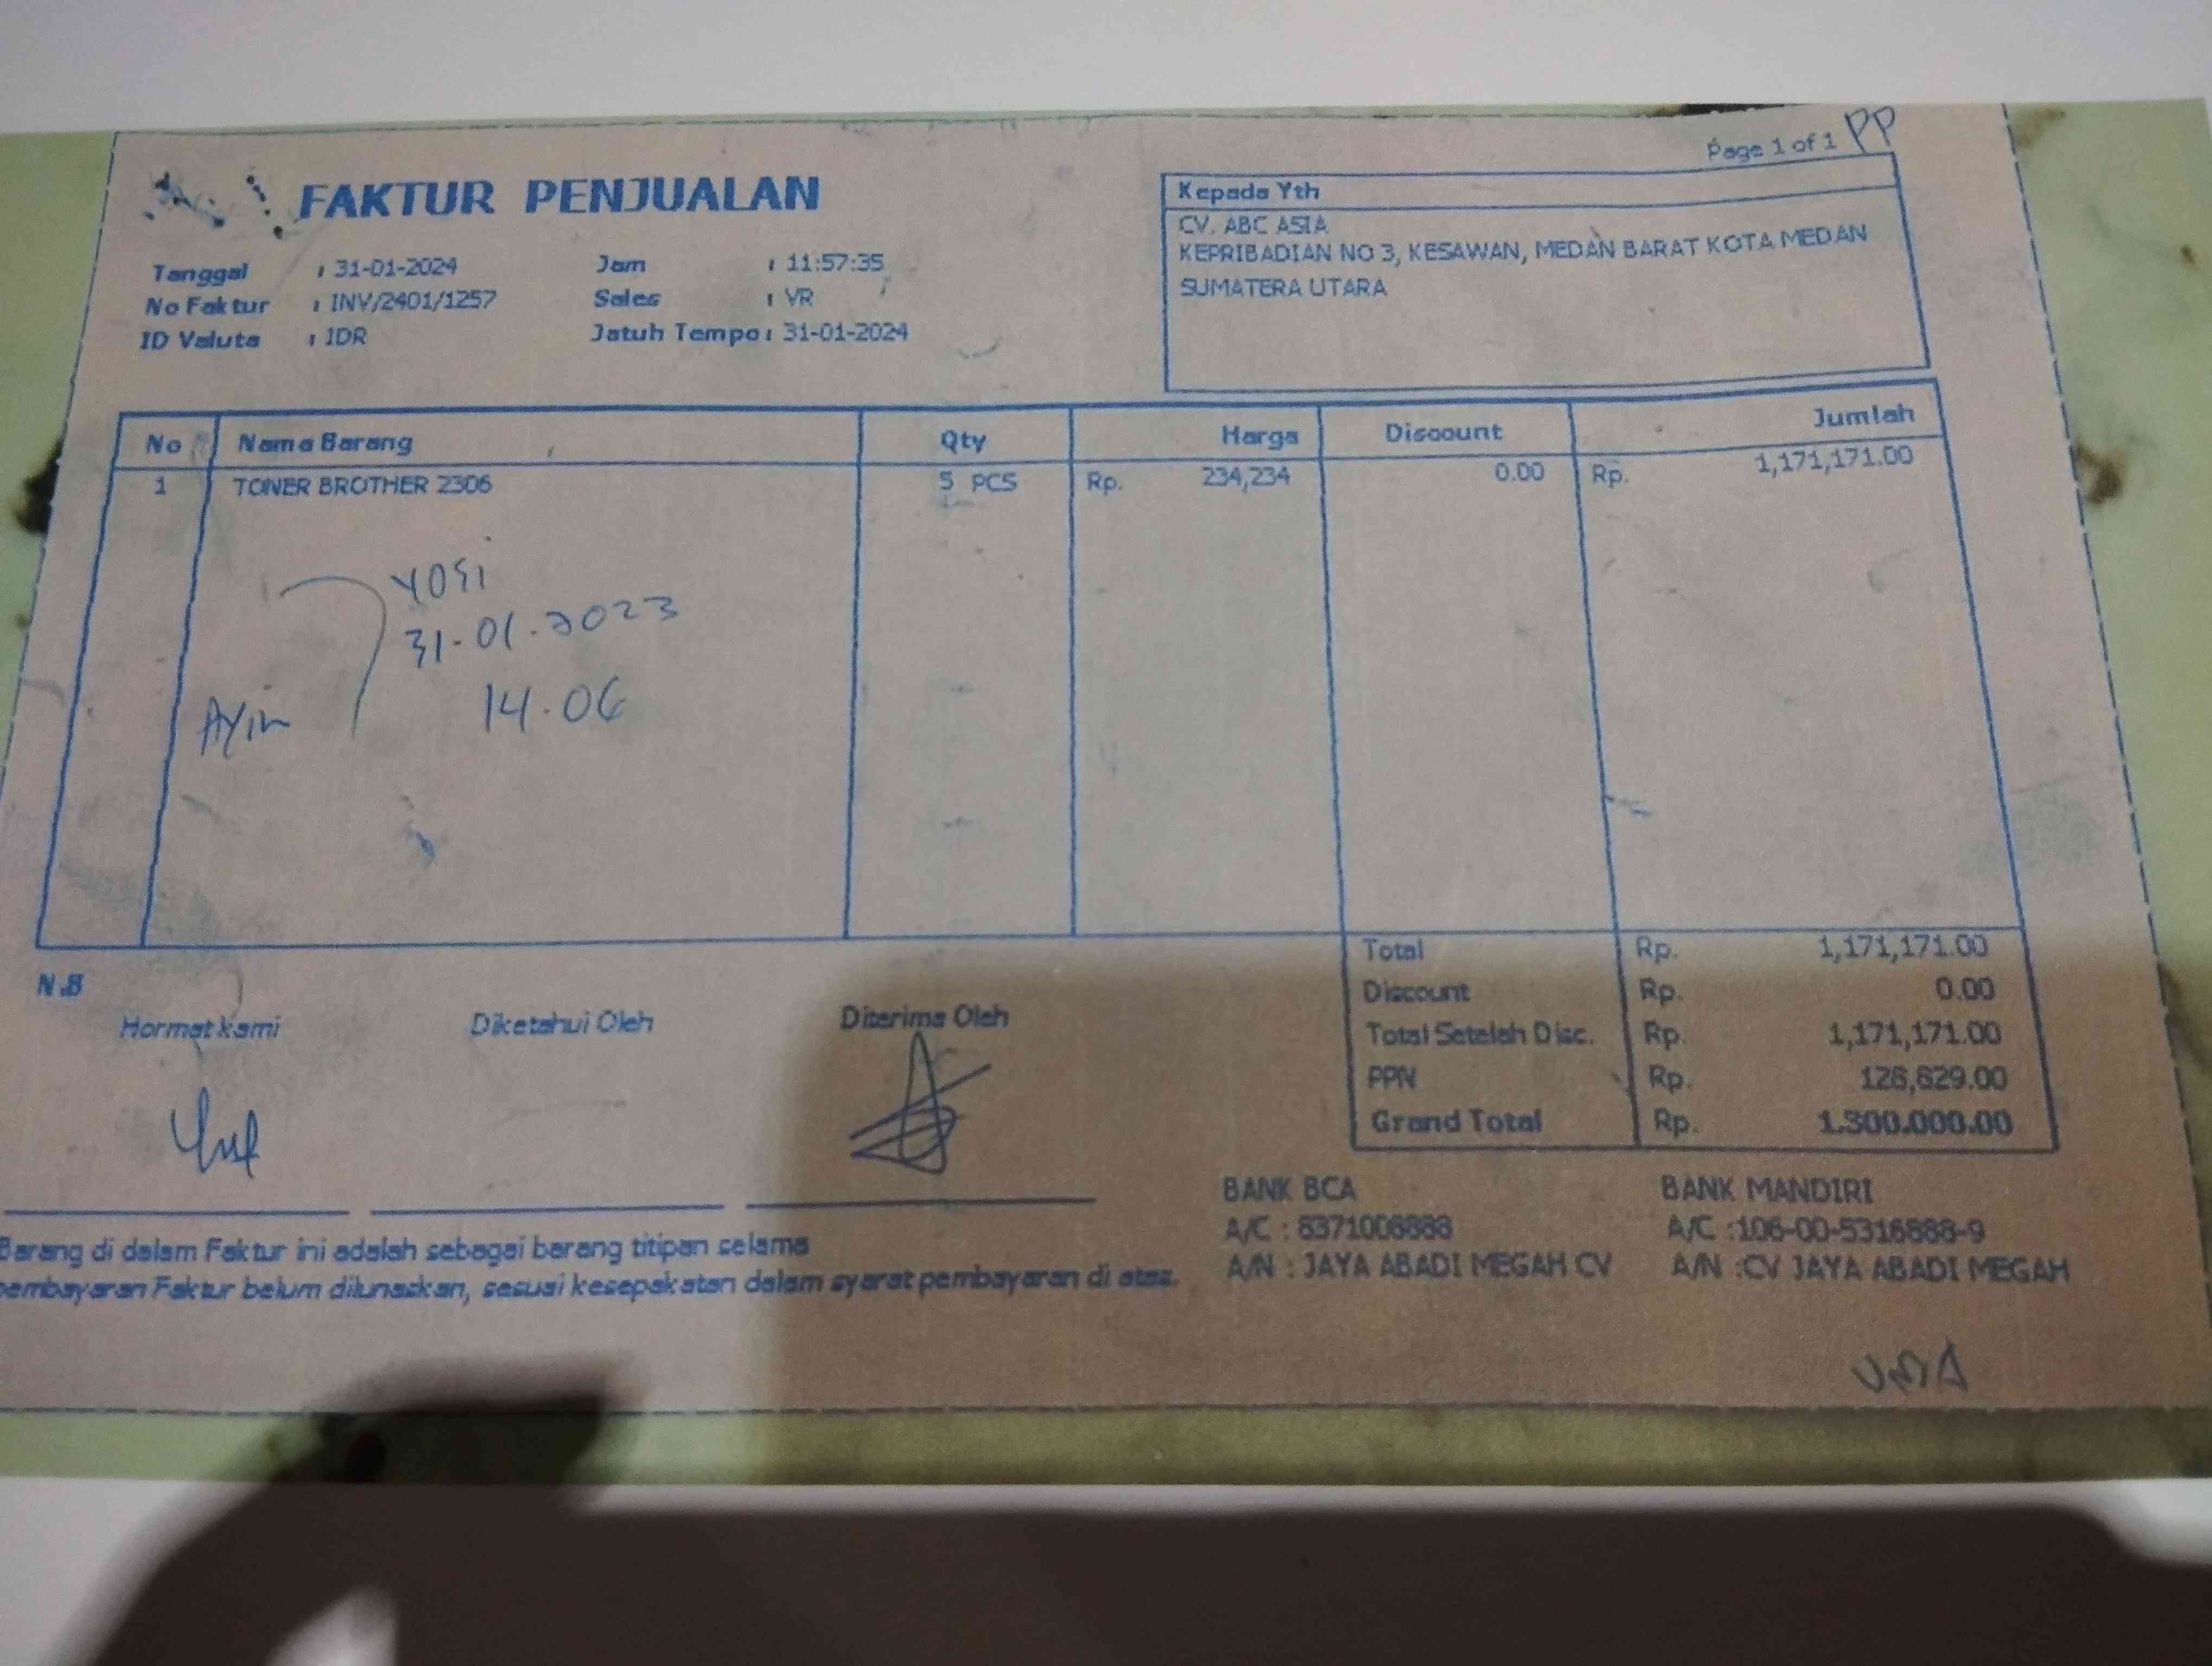 Page 1 of 1 PP
FAKTUR PENJUALAN
Tanggal : 31-01-2024 Jam : 11:57:35
No Faktur : INV/2401/1257 Sales : VR
ID Valuta : IDR Jatuh Tempo : 31-01-2024
Kepada Yth
CV. ABC ASIA
KEPRIBADIAN NO 3, KESAWAN, MEDAN BARAT KOTA MEDAN
SUMATERA UTARA
No Nama Barang Qty Harga Discount Jumlah
1 TONER BROTHER 2306 5 PCS Rp. 234,234 0.00 Rp. 1,171,171.00
YOSi
31-01-2023
Ayin 14.06
Total Rp. 1,171,171.00
Discount Rp. 0.00
Total Setelah Disc. Rp. 1,171,171.00
PPN Rp. 128,829.00
Grand Total Rp. 1.300.000.00
N.B
Hormat kami Diketahui Oleh Diterima Oleh
BANK BCA
A/C : 8371008888
A/N : JAYA ABADI MEGAH CV
BANK MANDIRI
A/C :106-00-5316888-9
A/N :CV JAYA ABADI MEGAH
Barang di dalam Faktur ini adalah sebagai barang titipan selama
pembayaran Faktur belum dilunaskan, sesuai kesepakatan dalam syarat pembayaran di atas.